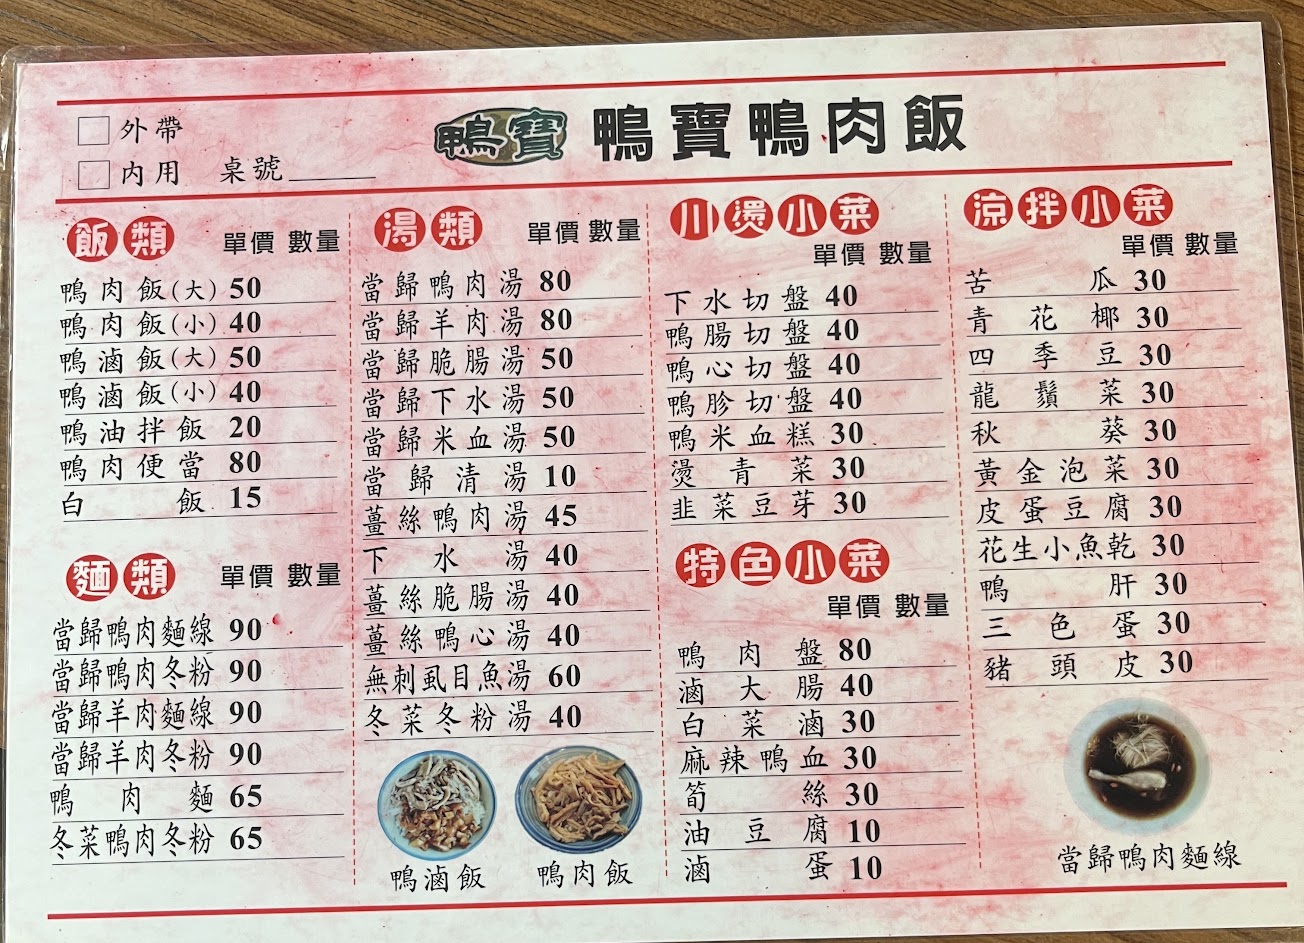 外帶
內用 桌號
鴨寶 鴨寶鴨肉飯
飯類 單價 數量
鴨肉飯(大) 50
鴨肉飯(小) 40
鴨滷飯(大) 50
鴨滷飯(小) 40
鴨油拌飯 20
鴨肉便當 80
白飯 15
麵類 單價 數量
當歸鴨肉麵線 90
當歸鴨肉冬粉 90
當歸羊肉麵線 90
當歸羊肉冬粉 90
鴨肉麵 65
冬菜鴨肉冬粉 65
湯類 單價 數量
當歸鴨肉湯 80
當歸羊肉湯 80
當歸脆腸湯 50
當歸下水湯 50
當歸米血湯 50
當歸清湯 10
薑絲鴨肉湯 45
下水湯 40
薑絲脆腸湯 40
薑絲鴨心湯 40
無刺虱目魚湯 60
冬菜冬粉湯 40
鴨滷飯
鴨肉飯
川燙小菜
單價 數量
下水切盤 40
鴨腸切盤 40
鴨心切盤 40
鴨胗切盤 40
鴨米血糕 30
燙青菜 30
韭菜豆芽 30
特色小菜
單價 數量
鴨肉盤 80
滷大腸 40
白菜滷 30
麻辣鴨血 30
筍絲 30
油豆腐 10
滷蛋 10
涼拌小菜
單價 數量
苦瓜 30
青花椰 30
四季豆 30
龍鬚菜 30
秋葵 30
黃金泡菜 30
皮蛋豆腐 30
花生小魚乾 30
鴨肝 30
三色蛋 30
豬頭皮 30
當歸鴨肉麵線